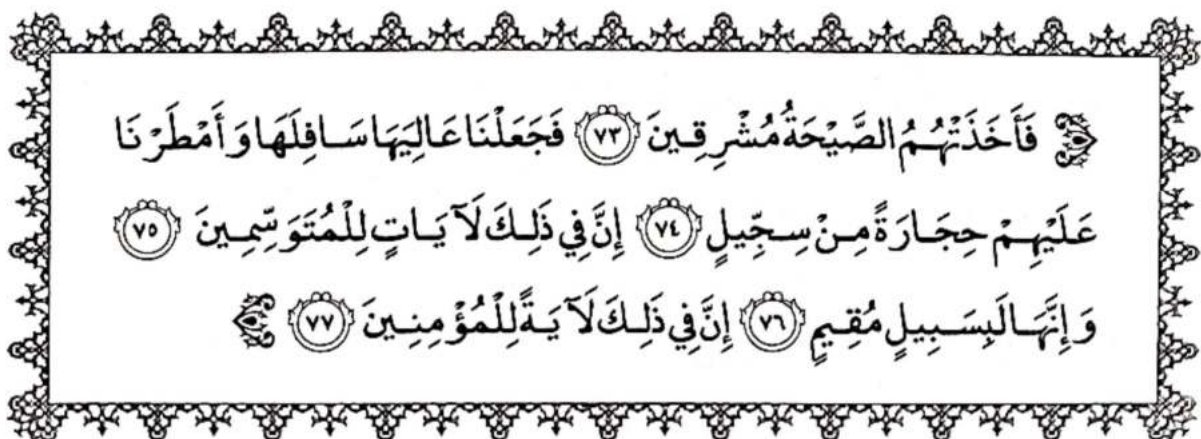 فَأَخَذَتْهُمُ الصَّيْحَةُ مُشْرِقِينَ ﴿٧٣﴾ فَجَعَلْنَا عَالِيَهَا سَافِلَهَا وَأَمْطَرْنَا
عَلَيْهِمْ حِجَارَةً مِنْ سِجِّيلٍ ﴿٧٤﴾ إِنَّ فِي ذَلِكَ لَآيَاتٍ لِلْمُتَوَسِّمِينَ ﴿٧٥﴾
وَإِنَّهَا لَبِسَبِيلٍ مُقِيمٍ ﴿٧٦﴾ إِنَّ فِي ذَلِكَ لَآيَةً لِلْمُؤْمِنِينَ ﴿٧٧﴾